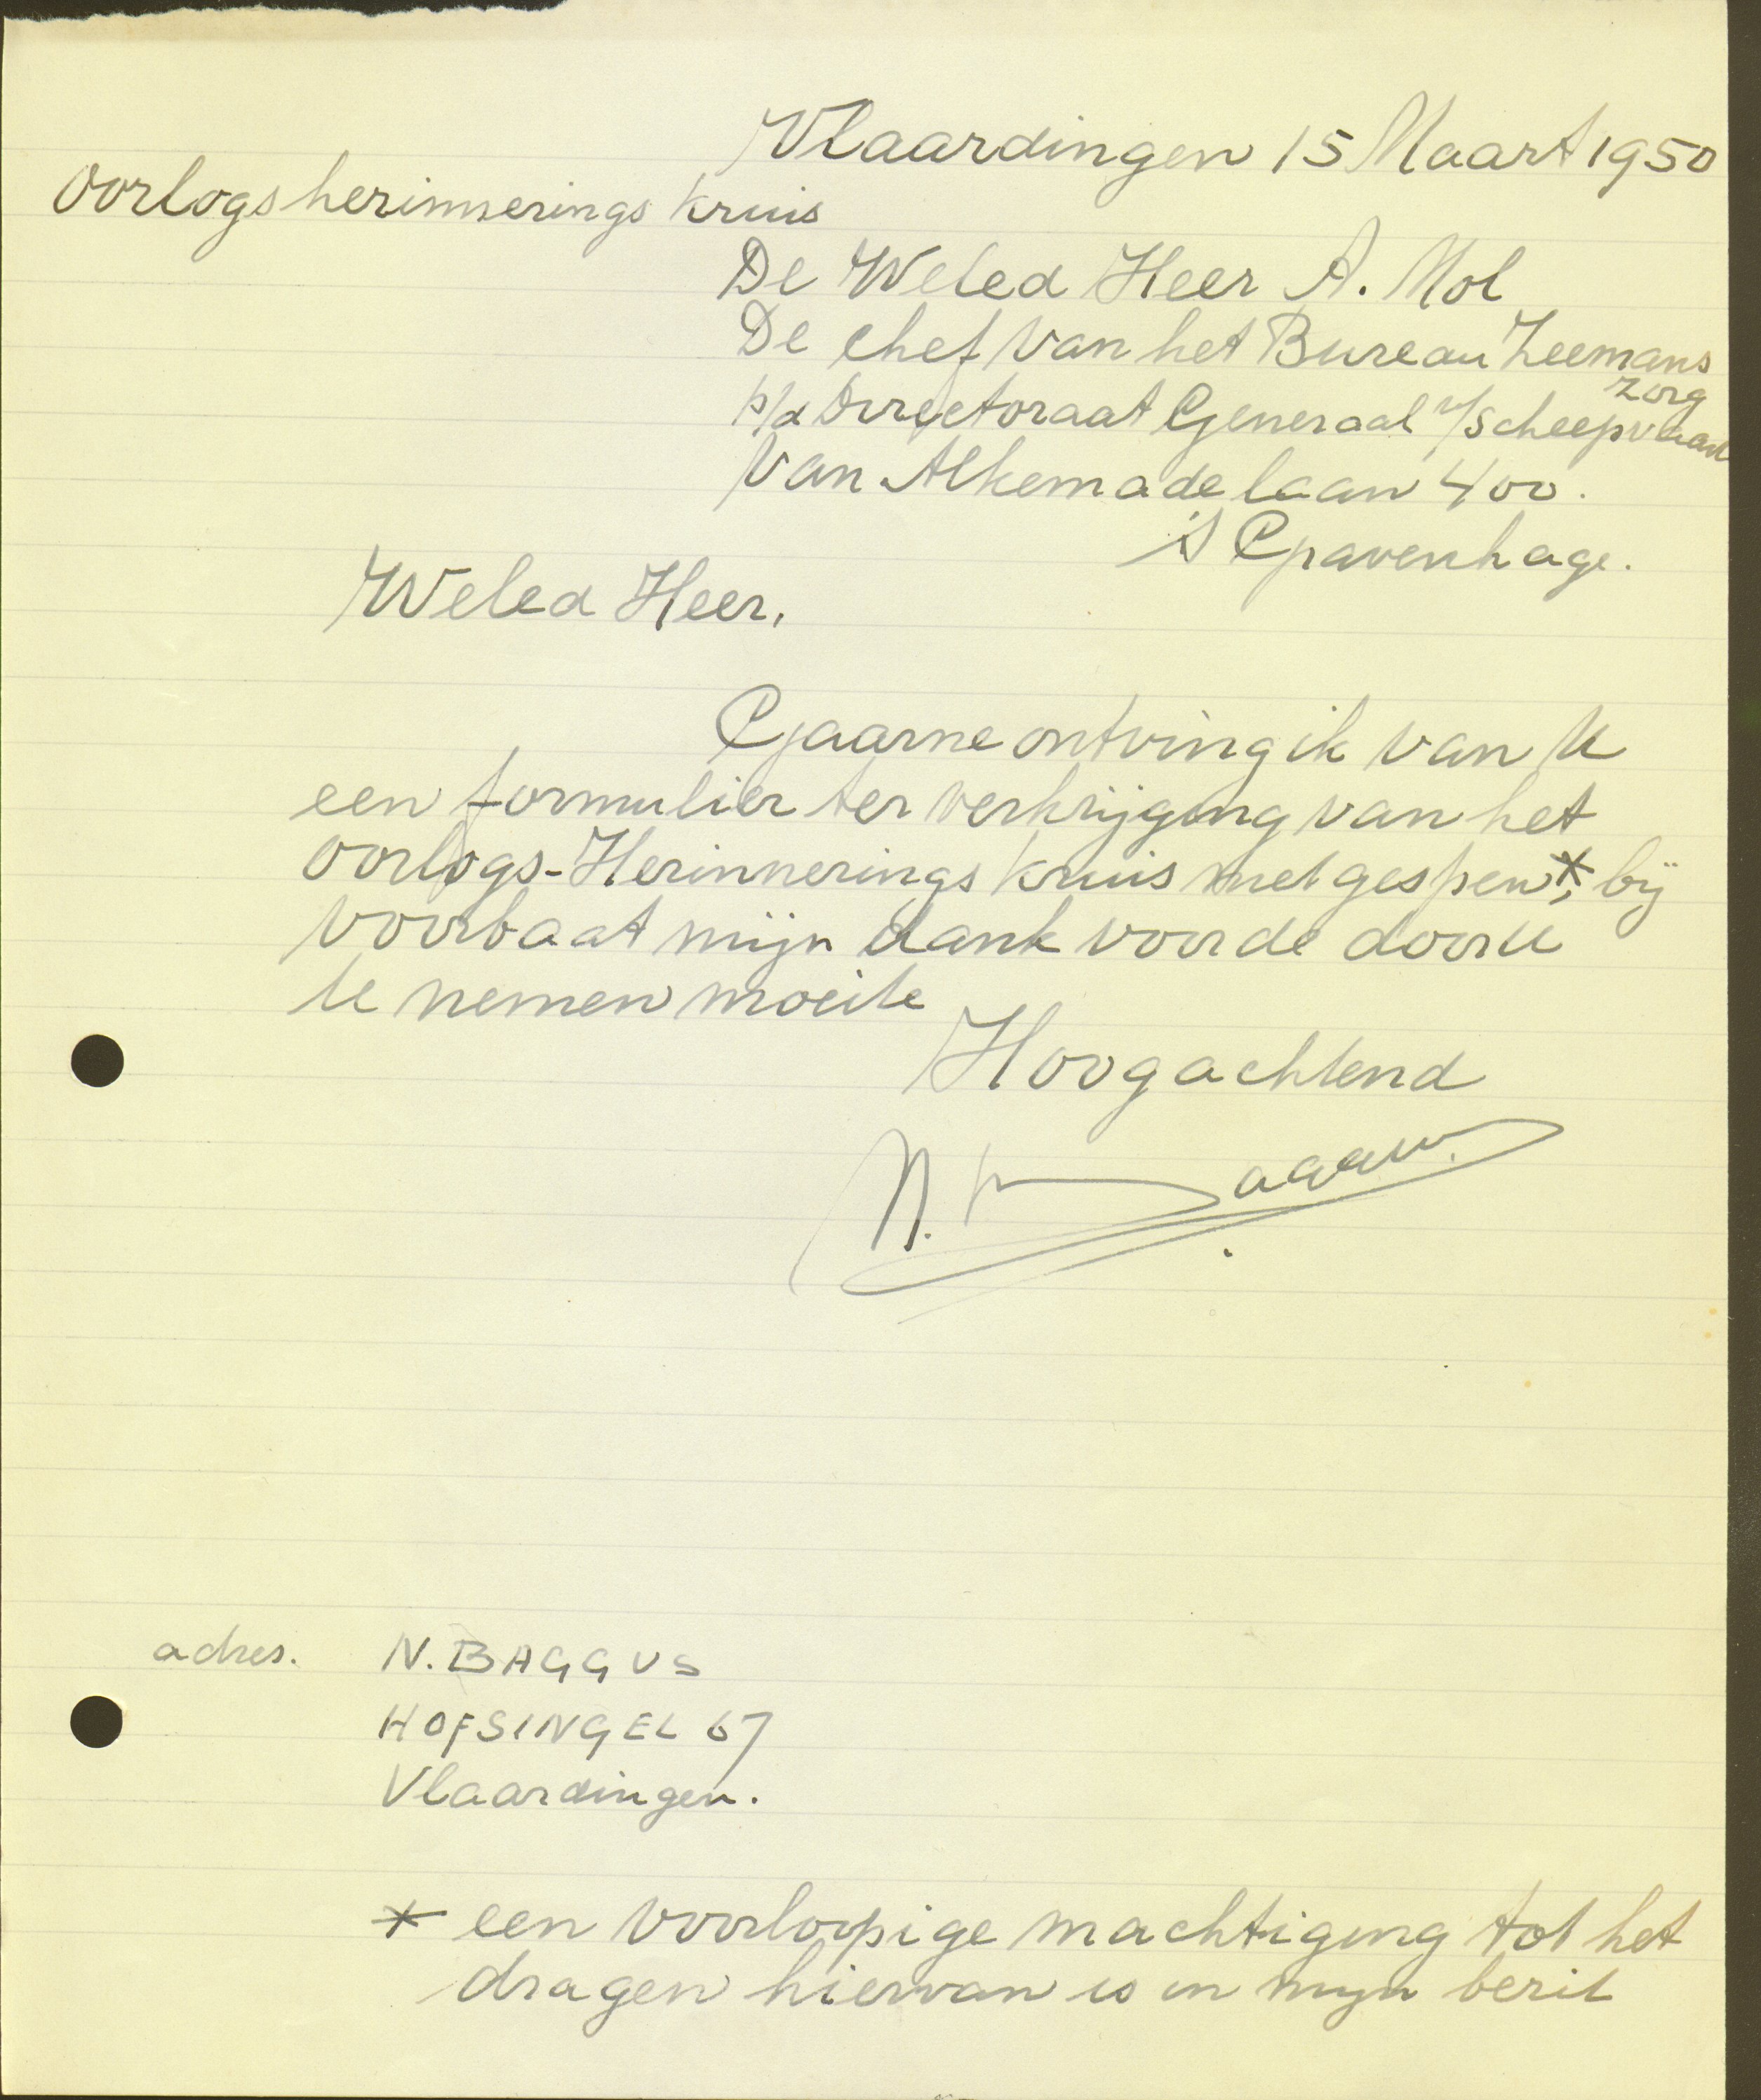 Vlaardingen 15 Maart 1950
Oorlogsherinnerings kruis
De Weled Heer A. Mol
De chef van het Bureau Zeemans
zorg
p/a Directoraat Generaal v/Scheepvaart
Van Alkemade laan 400.
's Gravenhage.
Weled Heer,
Gaarne ontving ik van U
een formulier ter verkrijging van het
Oorlogs-Herinnerings kruis met gespen*, bij
voorbaat mijn dank voor de door U
te nemen moeite
Hoogachtend
N.
adres. N. BAGGUS
HOFSINGEL 67
Vlaardingen.
* een voorloopige machtiging tot het
dragen hiervan is in mijn bezit